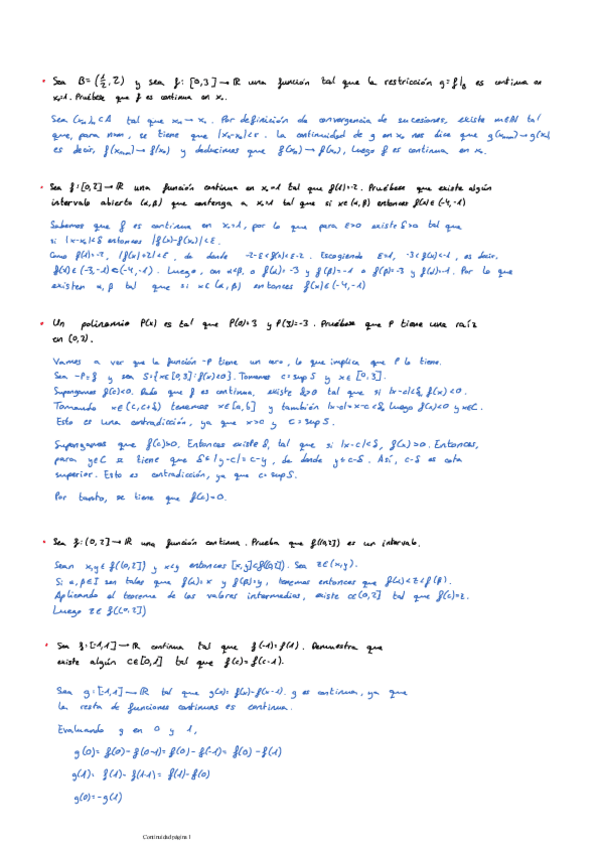 • Sea B=(1/2,2) y sea f:[0,3]→ℝ una función tal que la restricción g=f|B es continua en
x₀=1. Pruébese que f es continua en x₀.
Sea (xₙ)ₙ⊂A tal que xₙ→x₀. Por definición de convergencia de sucesiones, existe m∈ℕ tal
que, para n≥m, se tiene que |xₙ-x₀|<r. La continuidad de g en x₀ nos dice que g(xₘ₊ₙ)→g(x₀)
es decir, f(xₘ₊ₙ)→f(x₀) y deducimos que f(xₙ)→f(x₀), luego f es continua en x₀.
• Sea f:[0,2]→ℝ una función continua en x₀=1 tal que f(1)=-2. Pruébese que existe algún
intervalo abierto (α,β) que contenga a x₀=1 tal que si x∈(α,β) entonces f(x)∈(-4,-1)
Sabemos que f es continua en x₀=1, por lo que para ε>0 existe δ>0 tal que
si |x-x₀|<δ entonces |f(x)-f(x₀)|<ε.
Como f(1)=-2, |f(x)+2|<ε, de donde -2-ε<f(x)<ε-2. Escogiendo ε=1, -3<f(x)<-1, es decir,
f(x)∈(-3,-1)⊂(-4,-1). Luego, con α<β, o f(α)=-3 y f(β)=-1 o f(β)=-3 y f(α)=-1. Por lo que
existen α,β tal que si x∈(α,β) entonces f(x)∈(-4,-1)
• Un polinomio P(x) es tal que P(0)=3 y P(3)=-3. Pruébese que P tiene una raíz
en (0,2).
Vamos a ver que la función -P tiene un cero, lo que implica que P lo tiene.
Sea -P=f y sea S={x∈[0,3]:f(x)<0}. Tomemos c=sup S y x∈[0,3].
Supongamos f(c)<0. Dado que f es continua, existe δ>0 tal que si |x-c|<δ, f(x)<0.
Tomando x∈(c,c+δ) tenemos x∈[a,b] y también |x-c|=x-c<δ, luego f(x)<0 y x∈C.
Esto es una contradicción, ya que x>c y c=sup S.
Supongamos que f(c)>0. Entonces existe δ, tal que si |x-c|<δ, f(x)>0. Entonces,
para y∈C se tiene que δ≤|y-c|=c-y, de donde y≤c-δ. Así, c-δ es cota
superior. Esto es contradicción, ya que c=sup S.
Por tanto, se tiene que f(c)=0.
• Sea f:(0,2]→ℝ una función continua. Prueba que f((0,2]) es un intervalo.
Sean x,y∈f((0,2]) y x<y entonces [x,y]⊂f((0,2]). Sea z∈(x,y).
Si α,β∈I son tales que f(α)=x y f(β)=y, tenemos entonces que f(α)<z<f(β).
Aplicando el teorema de los valores intermedios, existe c∈(0,2] tal que f(c)=z.
Luego z∈f((0,2])
• Sea f:[-1,1]→ℝ continua tal que f(-1)=f(1). Demuestra que
existe algún c∈[0,1] tal que f(c)=f(c-1).
Sea g:[-1,1]→ℝ tal que g(x)=f(x)-f(x-1). g es continua, ya que
la resta de funciones continuas es continua.
Evaluando g en 0 y 1,
g(0)=f(0)-f(0-1)=f(0)-f(-1)=f(0)-f(1)
g(1)=f(1)-f(1-1)=f(1)-f(0)
g(0)=-g(1)
Continuidad página 1